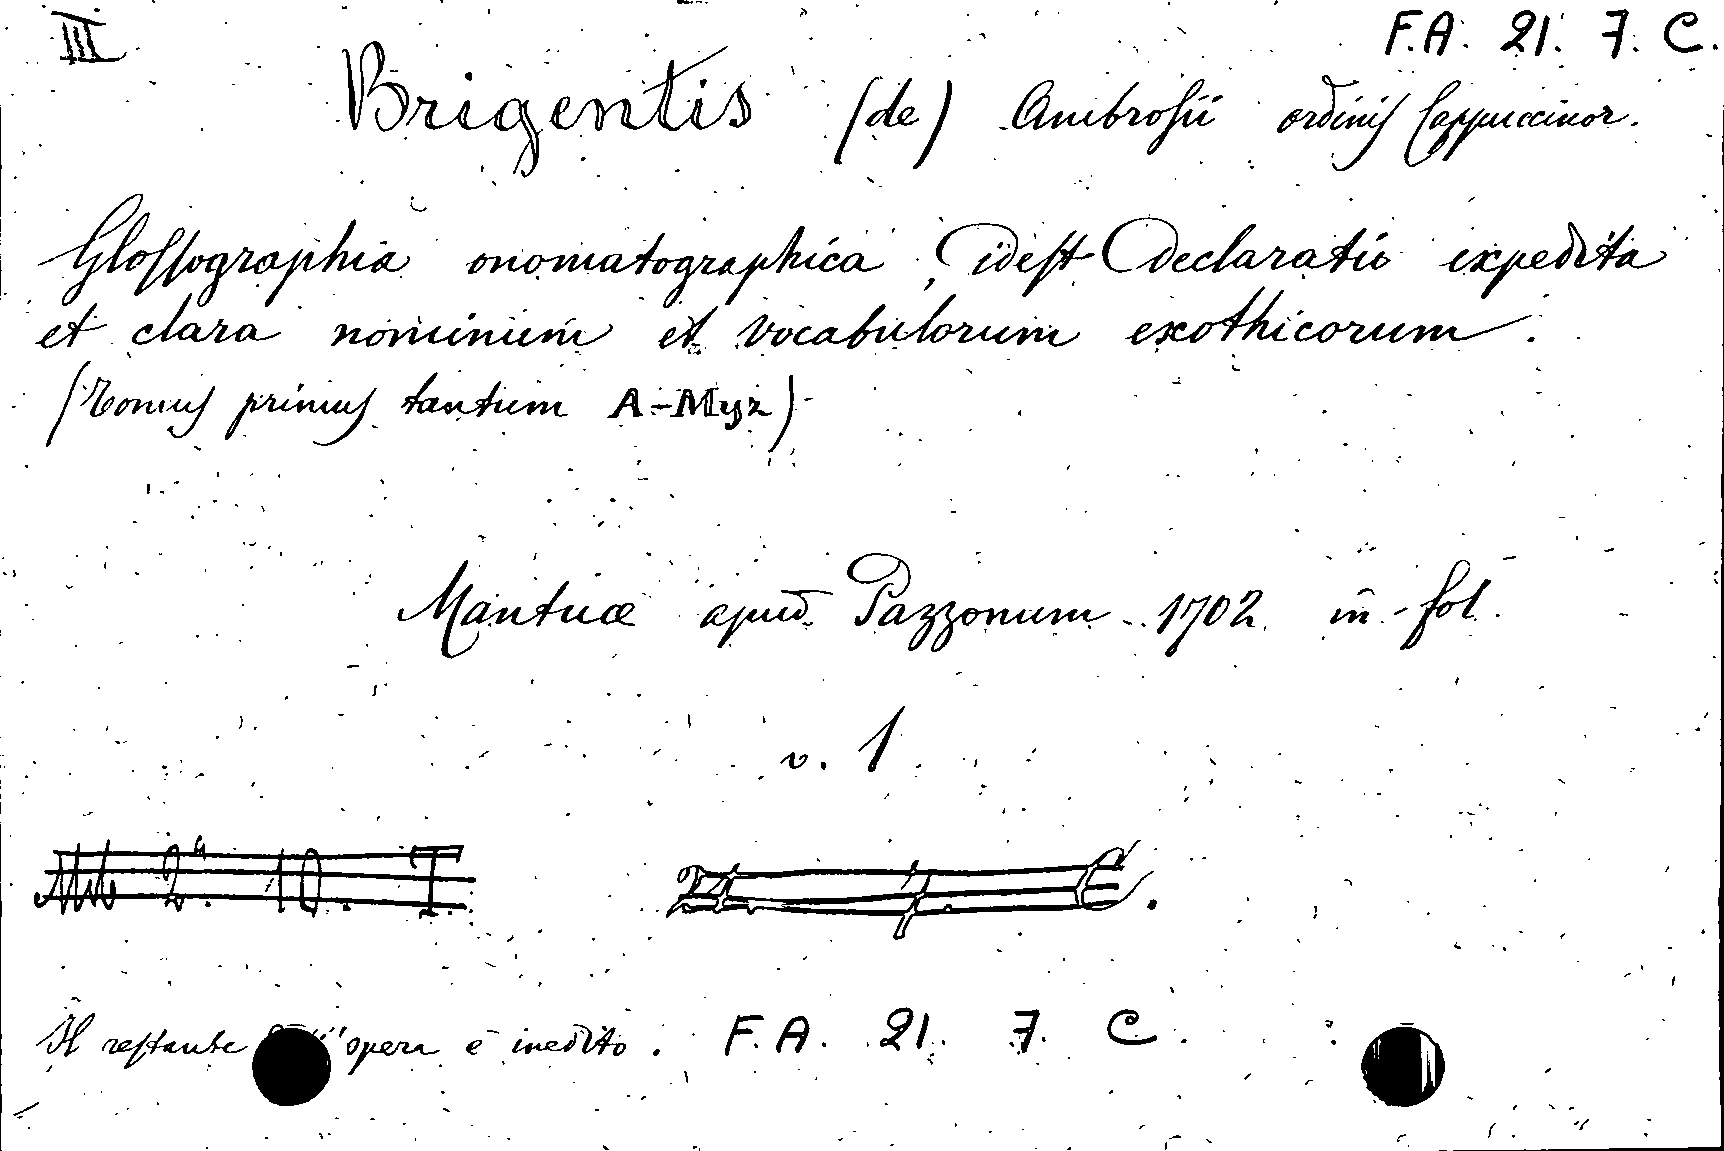 III F.A. 21. 7. C.
Brigentis (de) Ambrosii ordinis Cappuccinor.
Glossographia onomatographica, idest Declaratio expedita
et clara nominum et vocabulorum exothicorum.
(Tomus primus tantum A-Myz)
Mantuæ apud Pazzonum 1702 in-fol.
v. 1
Mb 2ª. 10. I. 21. 7. C.
Il restante opera è inedito. F.A. 21. 7. C.